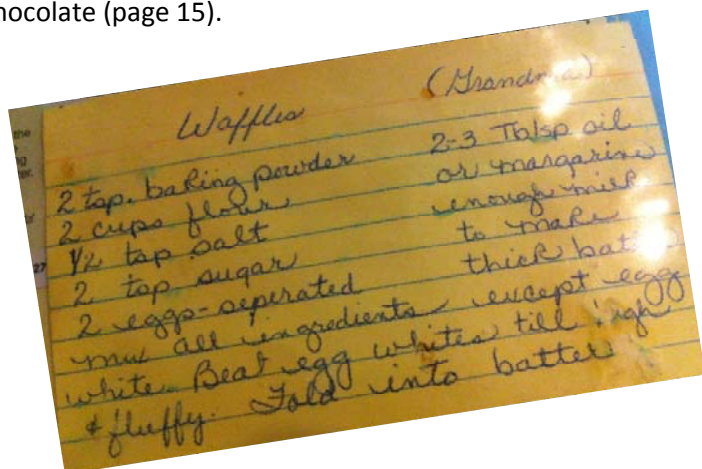 hocolate (page 15).
Waffles (Grandma)
2 tsp. baking powder
2 cups flour
1/2 tsp salt
2 tsp sugar
2 eggs-seperated
2-3 Tblsp oil
or margarine
enough milk
to make
thick batter
mix all ingredients except egg
white. Beat egg whites till high
& fluffy. Fold into batter
27